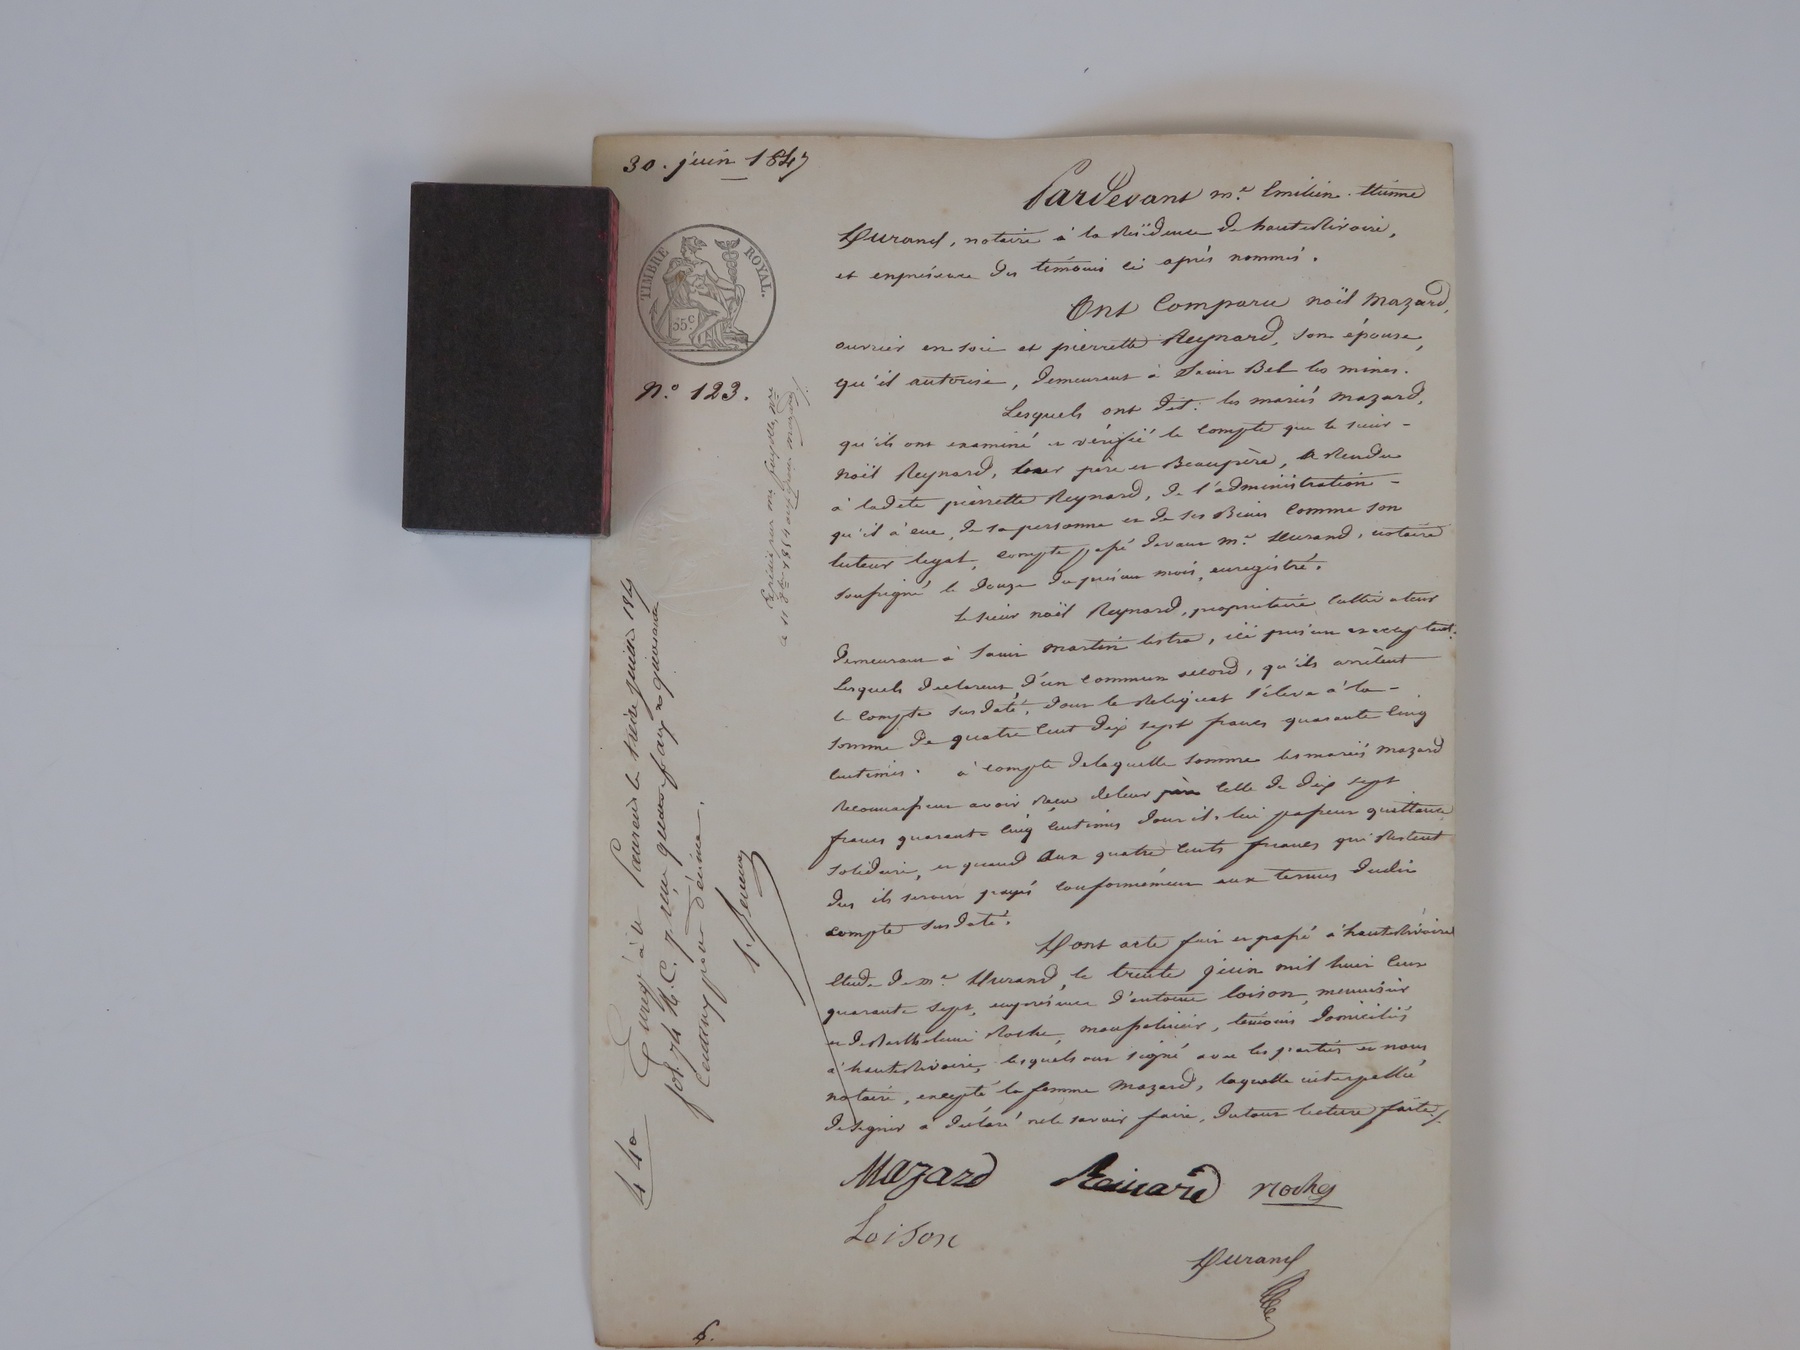 30. juin 1847
TIMBRE ROYAL.
55 c.
N.o 123.
Pardevant m.e Emilien Etienne
Durand, notaire à la Résidence de hauteRivoire,
et enprésence des témoins ci après nommés.
Ont Comparu noël Mazard,
ouvrier en soie et pierrette Reynard, son épouse,
qu'il autorise, demeurant à Sain Bel les mines.
Lesquels ont dit: les mariés Mazard,
qu'ils ont examiné et vérifié le compte que le sieur
Noël Reynard, leur père et Beaupère, a Rendu
à ladite pierrette Reynard, de l'administration
qu'il à eue, de sa personne et de ses Biens Comme son
tuteur légal, compte passé devant m.e Durand, notaire
soussigné le douze du présent mois, enregistré.
Le sieur noël Reynard, propriétaire cultivateur
demeurant à Saint Martin lestra, ici présent et acceptant.
Lesquels déclarent d'un commun accord, qu'ils arrêtent
le compte susdaté, dont le Reliquat s'éleve à la
somme de quatre Cent dix sept francs quarante Cinq
Centimes. à compte de laquelle somme les mariés Mazard
Reconnaissent avoir Reçu de leur père Celle de dix sept
francs quarante Cinq Centimes dont ils lui passent quittance
solidaire, et quand aux quatre Cents francs qui Restent
dus ils seront payés Conformément aux termes dudit
compte susdaté.
Dont acte fait et passé à hauteRivoire
Etude de m.e Durand, le trente juin mil huit Cent
quarante sept, enprésence d'antoine Loison, menuisier
et de Barthelemi Roche, maréchal, témoins domiciliés
à hauteRivoire, lesquels ont signé avec les parties et nous
notaire, excepté la femme Mazard, laquelle interpellée
de signer a déclaré ne le savoir faire, dutout lecture faite ./.
Mazard Reinard roche
Loison
Durand
440
fol. 74 R. C. 7 reçu
centimes pour décime.